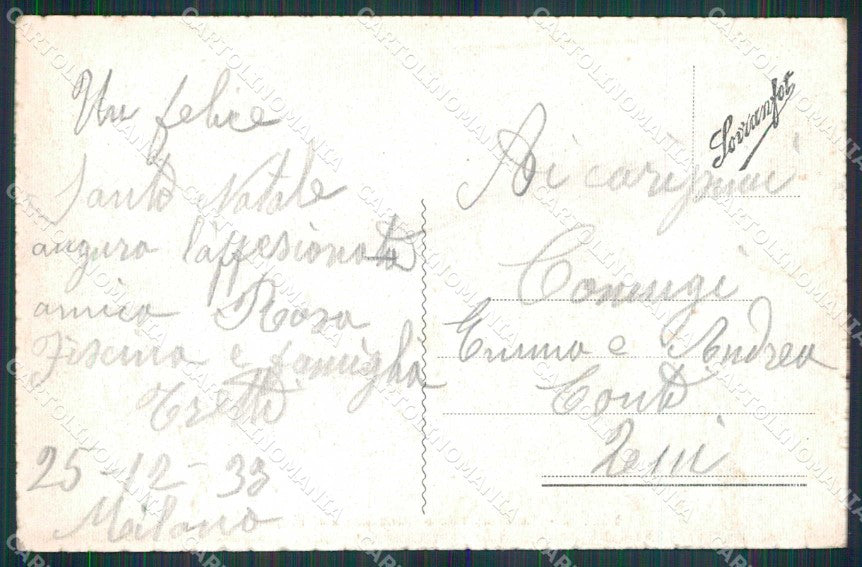 Un felice
Santo Natale
augura l'affesionata
amica Rosa
e famiglia
Tretti
25-12-33
Milano
Sovranfot
Ai carissimi
Coniugi
Emma e Andrea
Conti
CARTOLINOMANIA